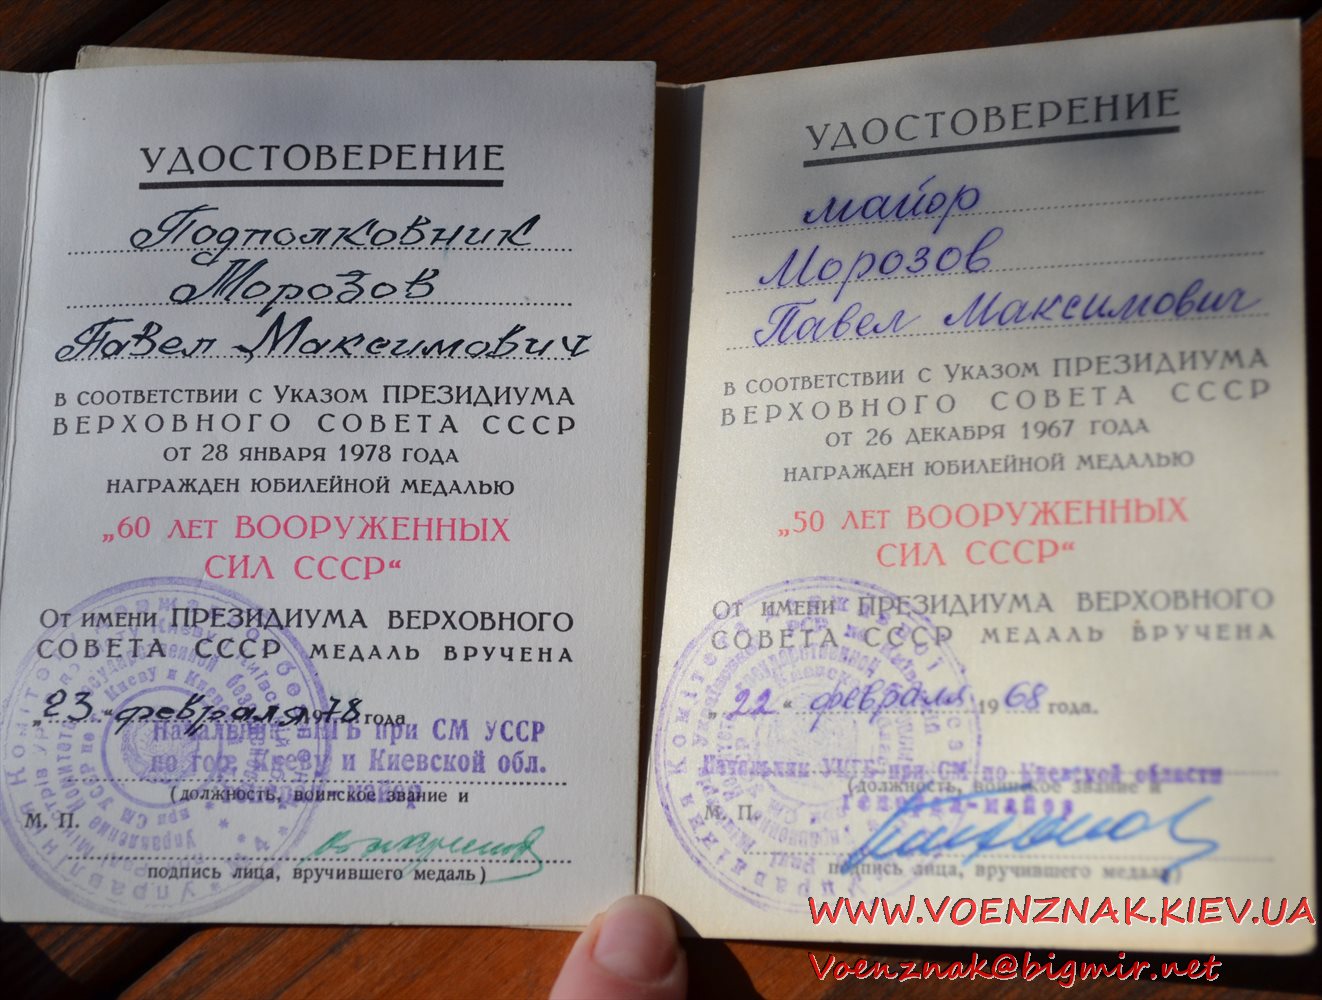 УДОСТОВЕРЕНИЕ
Подполковник
Морозов
Павел Максимович
В СООТВЕТСТВИИ С УКАЗОМ ПРЕЗИДИУМА
ВЕРХОВНОГО СОВЕТА СССР
ОТ 28 ЯНВАРЯ 1978 ГОДА
НАГРАЖДЕН ЮБИЛЕЙНОЙ МЕДАЛЬЮ
„60 ЛЕТ ВООРУЖЕННЫХ
СИЛ СССР“
ОТ ИМЕНИ ПРЕЗИДИУМА ВЕРХОВНОГО
СОВЕТА СССР МЕДАЛЬ ВРУЧЕНА
„23“ февраля 1978 года
Начальник УКГБ при СМ УССР
по гор. Киеву и Киевской обл.
(должность, воинское звание и
генерал-майор
М. П.
подпись лица, вручившего медаль)
УДОСТОВЕРЕНИЕ
майор
Морозов
Павел Максимович
В СООТВЕТСТВИИ С УКАЗОМ ПРЕЗИДИУМА
ВЕРХОВНОГО СОВЕТА СССР
ОТ 26 ДЕКАБРЯ 1967 ГОДА
НАГРАЖДЕН ЮБИЛЕЙНОЙ МЕДАЛЬЮ
„50 ЛЕТ ВООРУЖЕННЫХ
СИЛ СССР“
ОТ ИМЕНИ ПРЕЗИДИУМА ВЕРХОВНОГО
СОВЕТА СССР МЕДАЛЬ ВРУЧЕНА
„22“ февраля 1968 года.
Начальник УКГБ при СМ по Киевской области
(должность, воинское звание и
Генерал-майор
М. П.
подпись лица, вручившего медаль)
WWW.VOENZNAK.KIEV.UA
Voenznak@bigmir.net